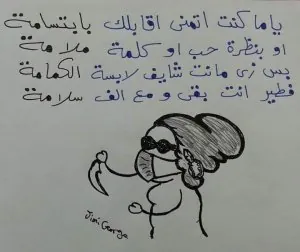 ياما كنت اتمنى اقابلك بابتسامة
او بنظرة حب او كلمة ملامة
بس زى مانت شايف لابسة الكمامة
فطير انت بقى و مع الف سلامة
Jimi George